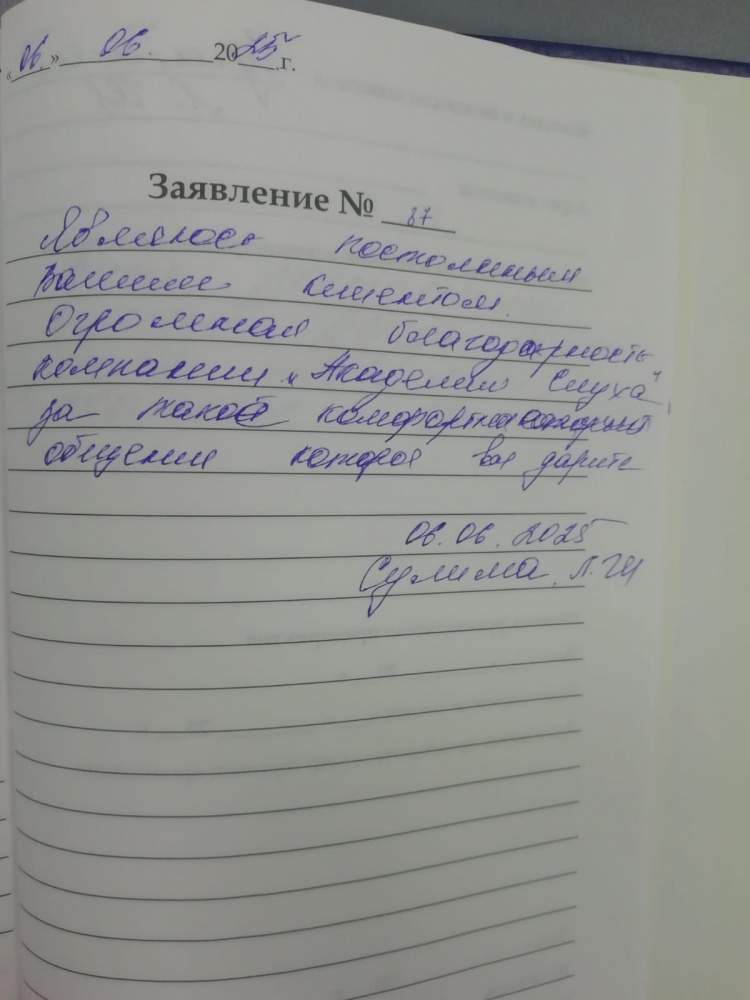 «06.» 06. 2025 г.
Заявление № 37
Являюсь постоянным
Вашим клиентом.
Огромная благодарность
компании „Академия Слуха“
за такое комфортное
общение которое вы дарите
06.06.2025
Сулима Л.